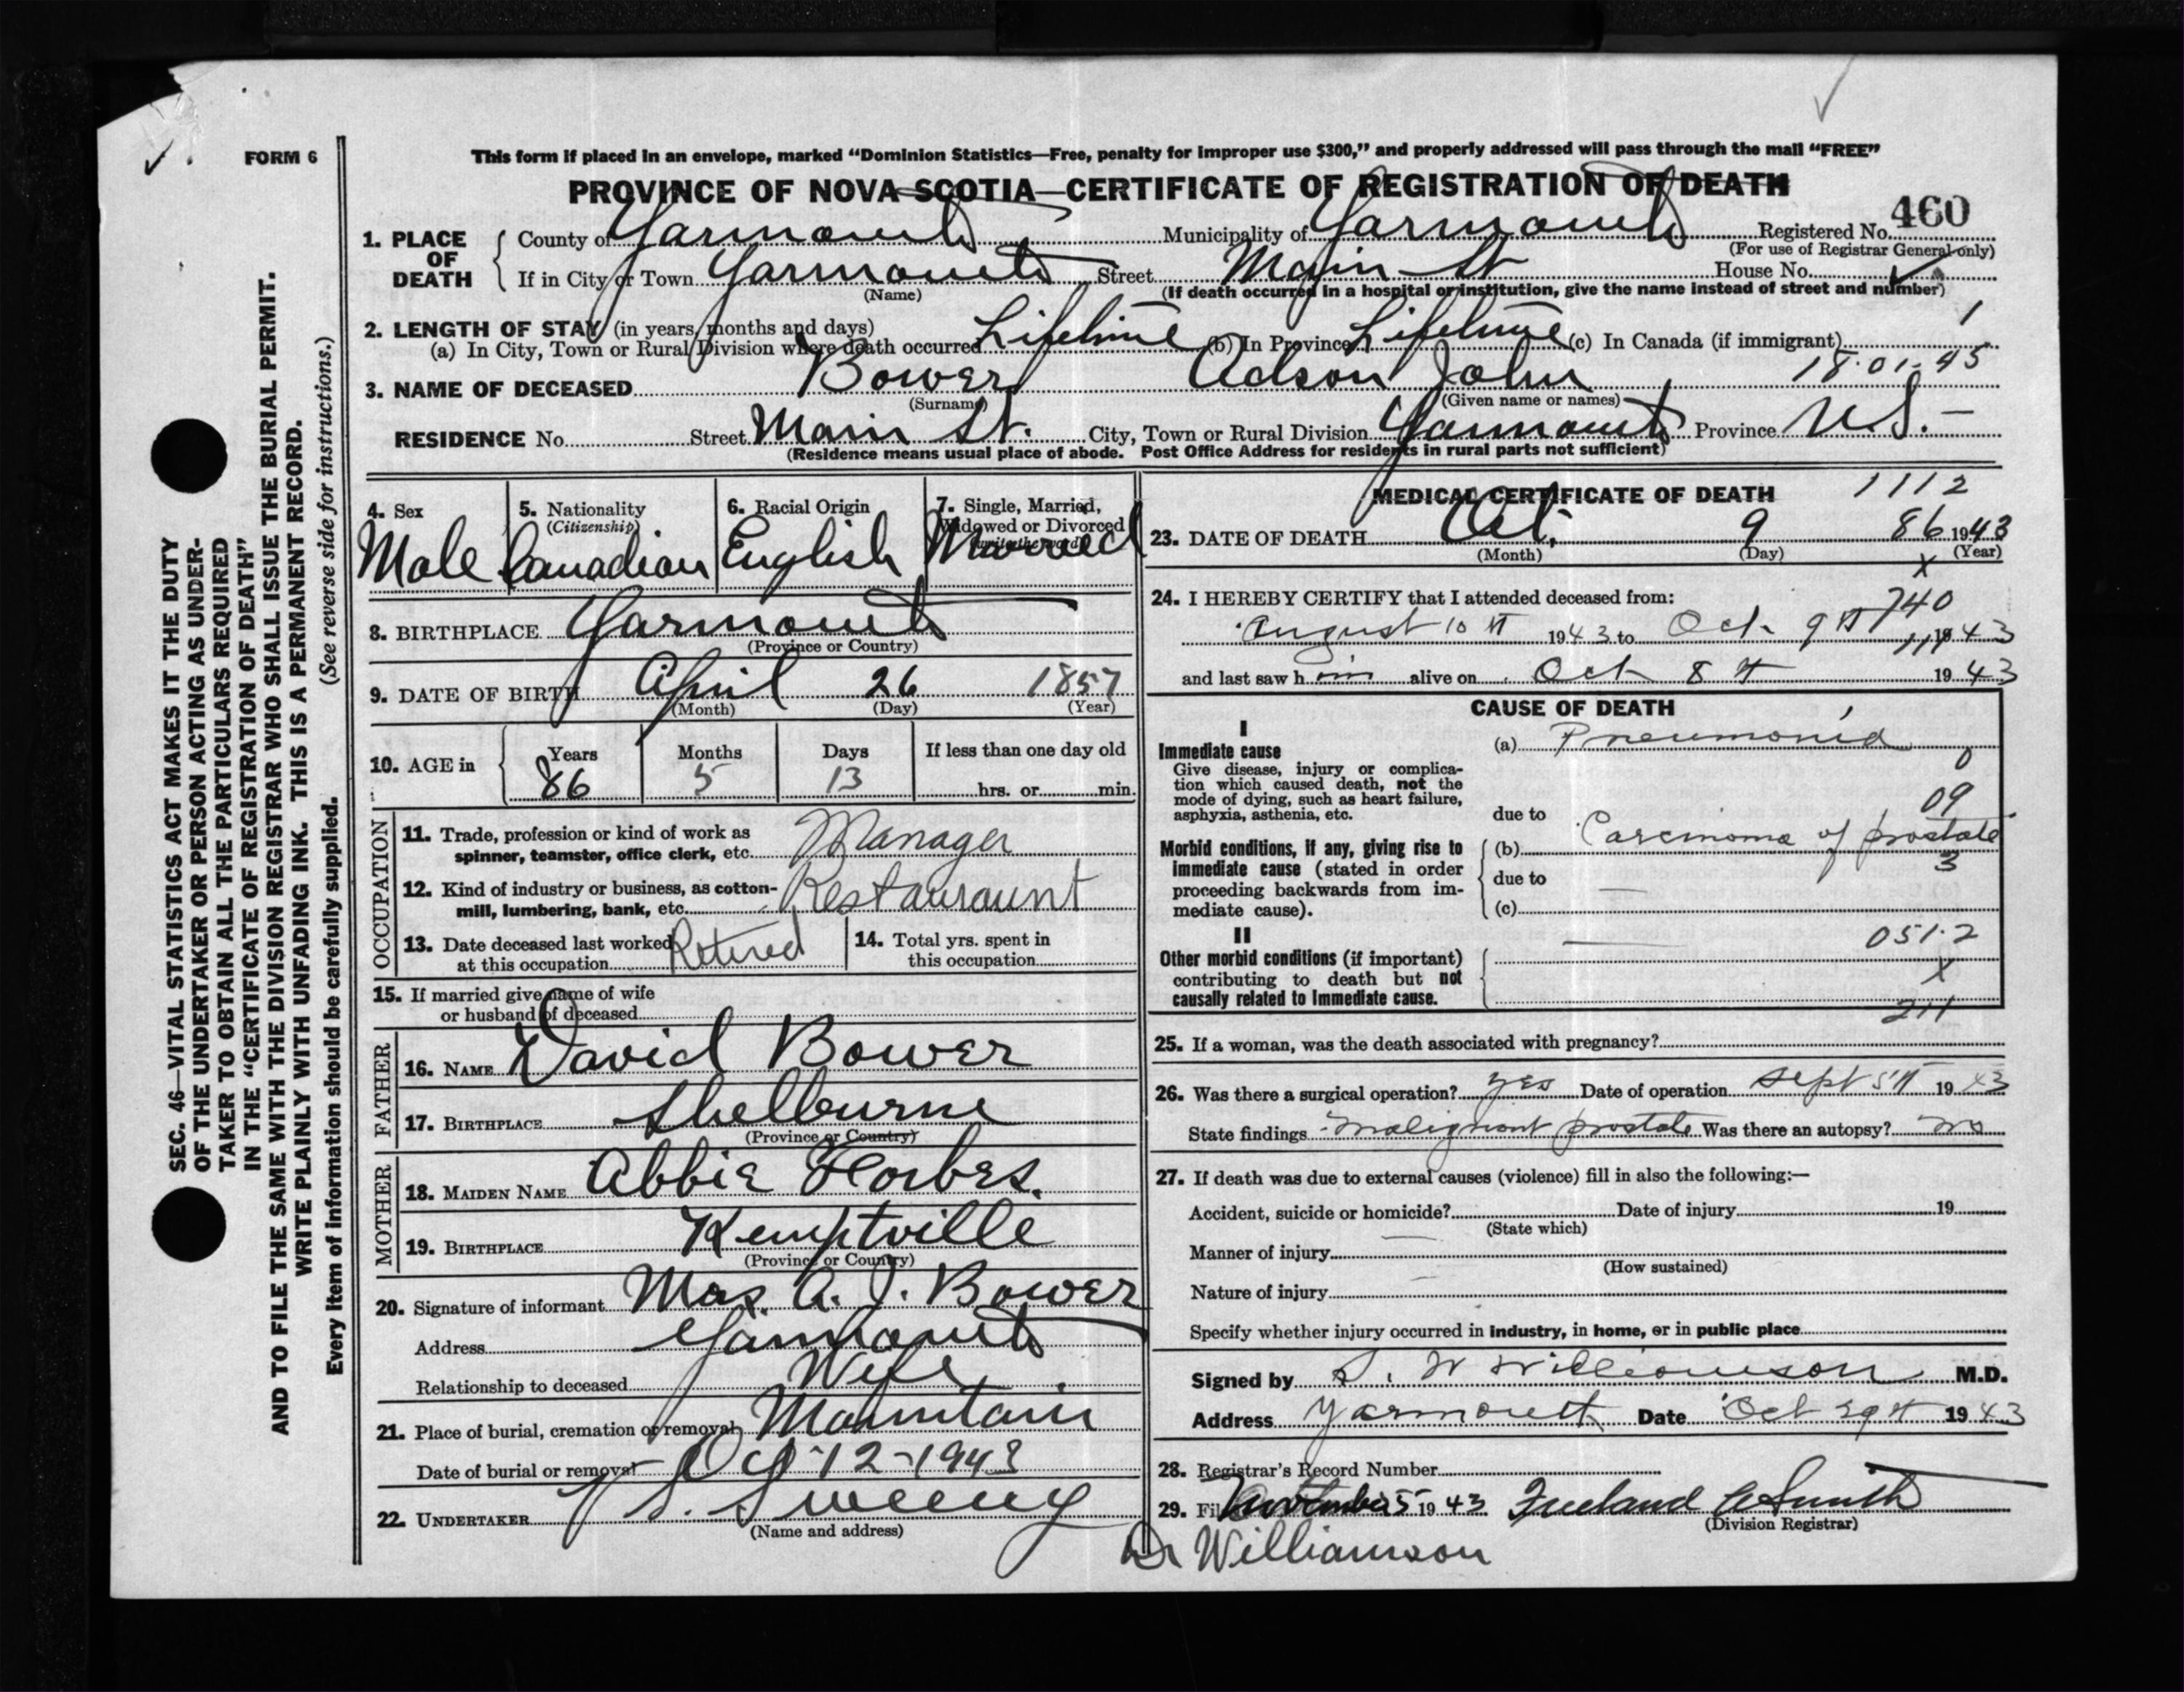 FORM 6
This form if placed in an envelope, marked "Dominion Statistics—Free, penalty for improper use $300," and properly addressed will pass through the mail "FREE"
PROVINCE OF NOVA SCOTIA—CERTIFICATE OF REGISTRATION OF DEATH
460
1. PLACE OF DEATH County of Yarmouth Municipality of Yarmouth Registered No.
(For use of Registrar General only)
If in City or Town Yarmouth Street Main St House No.
(Name)
(If death occurred in a hospital or institution, give the name instead of street and number)
2. LENGTH OF STAY (in years, months and days)
1
(a) In City, Town or Rural Division where death occurred Lifetime (b) In Province Lifetime (c) In Canada (if immigrant)
18.01.45
3. NAME OF DECEASED Bower Adson John
(Surname) (Given name or names)
RESIDENCE No. Street Main St. City, Town or Rural Division Yarmouth Province N.S.—
(Residence means usual place of abode. Post Office Address for residents in rural parts not sufficient)
4. Sex
Male
5. Nationality
(Citizenship)
Canadian
6. Racial Origin
English
7. Single, Married,
Widowed or Divorced
(write the word)
Married
8. BIRTHPLACE Yarmouth
(Province or Country)
9. DATE OF BIRTH April 26 1857
(Month) (Day) (Year)
10. AGE in Years Months Days If less than one day old
86 5 13 hrs. or min.
OCCUPATION
11. Trade, profession or kind of work as
spinner, teamster, office clerk, etc. Manager
12. Kind of industry or business, as cotton-
mill, lumbering, bank, etc. Restauraunt
13. Date deceased last worked
at this occupation Retired
14. Total yrs. spent in
this occupation
15. If married give name of wife
or husband of deceased
FATHER
16. NAME David Bower
17. BIRTHPLACE Shelburne
(Province or Country)
MOTHER
18. MAIDEN NAME Abbie Forbes.
19. BIRTHPLACE Kemptville
(Province or Country)
20. Signature of informant Mrs. A. J. Bower
Address Yarmouth
Relationship to deceased Wife
21. Place of burial, cremation or removal Mountain
Date of burial or removal Oct 12-1943
22. UNDERTAKER V. S. Sweeny
(Name and address)
MEDICAL CERTIFICATE OF DEATH
1112
23. DATE OF DEATH Oct. 9 86 1943
(Month) (Day) (Year)
X
24. I HEREBY CERTIFY that I attended deceased from:
740
August 10 th 1943 to Oct. 9 th 1943
and last saw him alive on Oct 8 th 1943
CAUSE OF DEATH
I
Immediate cause
Give disease, injury or complica-
tion which caused death, not the
mode of dying, such as heart failure,
asphyxia, asthenia, etc.
(a) Pneumonia
0
09
due to
Morbid conditions, if any, giving rise to
immediate cause (stated in order
proceeding backwards from im-
mediate cause).
(b) Carcinoma of prostate
3
due to
(c)
II
Other morbid conditions (if important)
contributing to death but not
causally related to immediate cause.
051.2
X
211
25. If a woman, was the death associated with pregnancy?
26. Was there a surgical operation? yes Date of operation Sept 5th 1943
State findings Malignant prostate Was there an autopsy? no
27. If death was due to external causes (violence) fill in also the following:—
Accident, suicide or homicide? Date of injury 19
(State which)
Manner of injury
(How sustained)
Nature of injury
Specify whether injury occurred in industry, in home, or in public place
Signed by S. W Williamson M.D.
Address Yarmouth Date Oct 29th 1943
28. Registrar's Record Number
29. Filed November 5 1943 Freeland A Smith
(Division Registrar)
Dr Williamson
SEC. 46—VITAL STATISTICS ACT MAKES IT THE DUTY
OF THE UNDERTAKER OR PERSON ACTING AS UNDER-
TAKER TO OBTAIN ALL THE PARTICULARS REQUIRED
IN THE "CERTIFICATE OF REGISTRATION OF DEATH"
AND TO FILE THE SAME WITH THE DIVISION REGISTRAR WHO SHALL ISSUE THE BURIAL PERMIT.
WRITE PLAINLY WITH UNFADING INK. THIS IS A PERMANENT RECORD.
Every item of information should be carefully supplied. (See reverse side for instructions.)